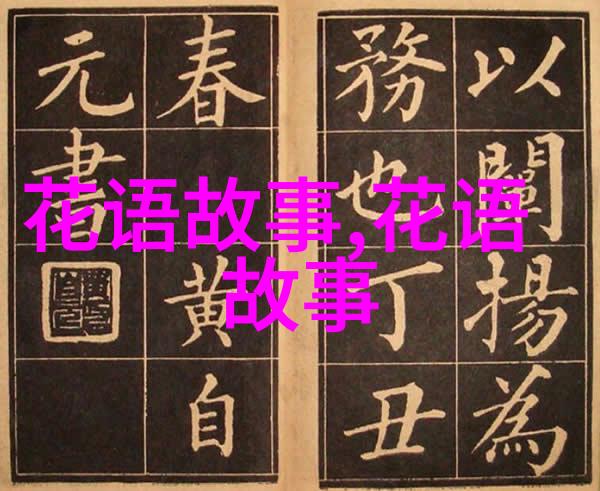 花语故事,花语
故事
以闡揚為
務也丁丑
春 黃自
元書